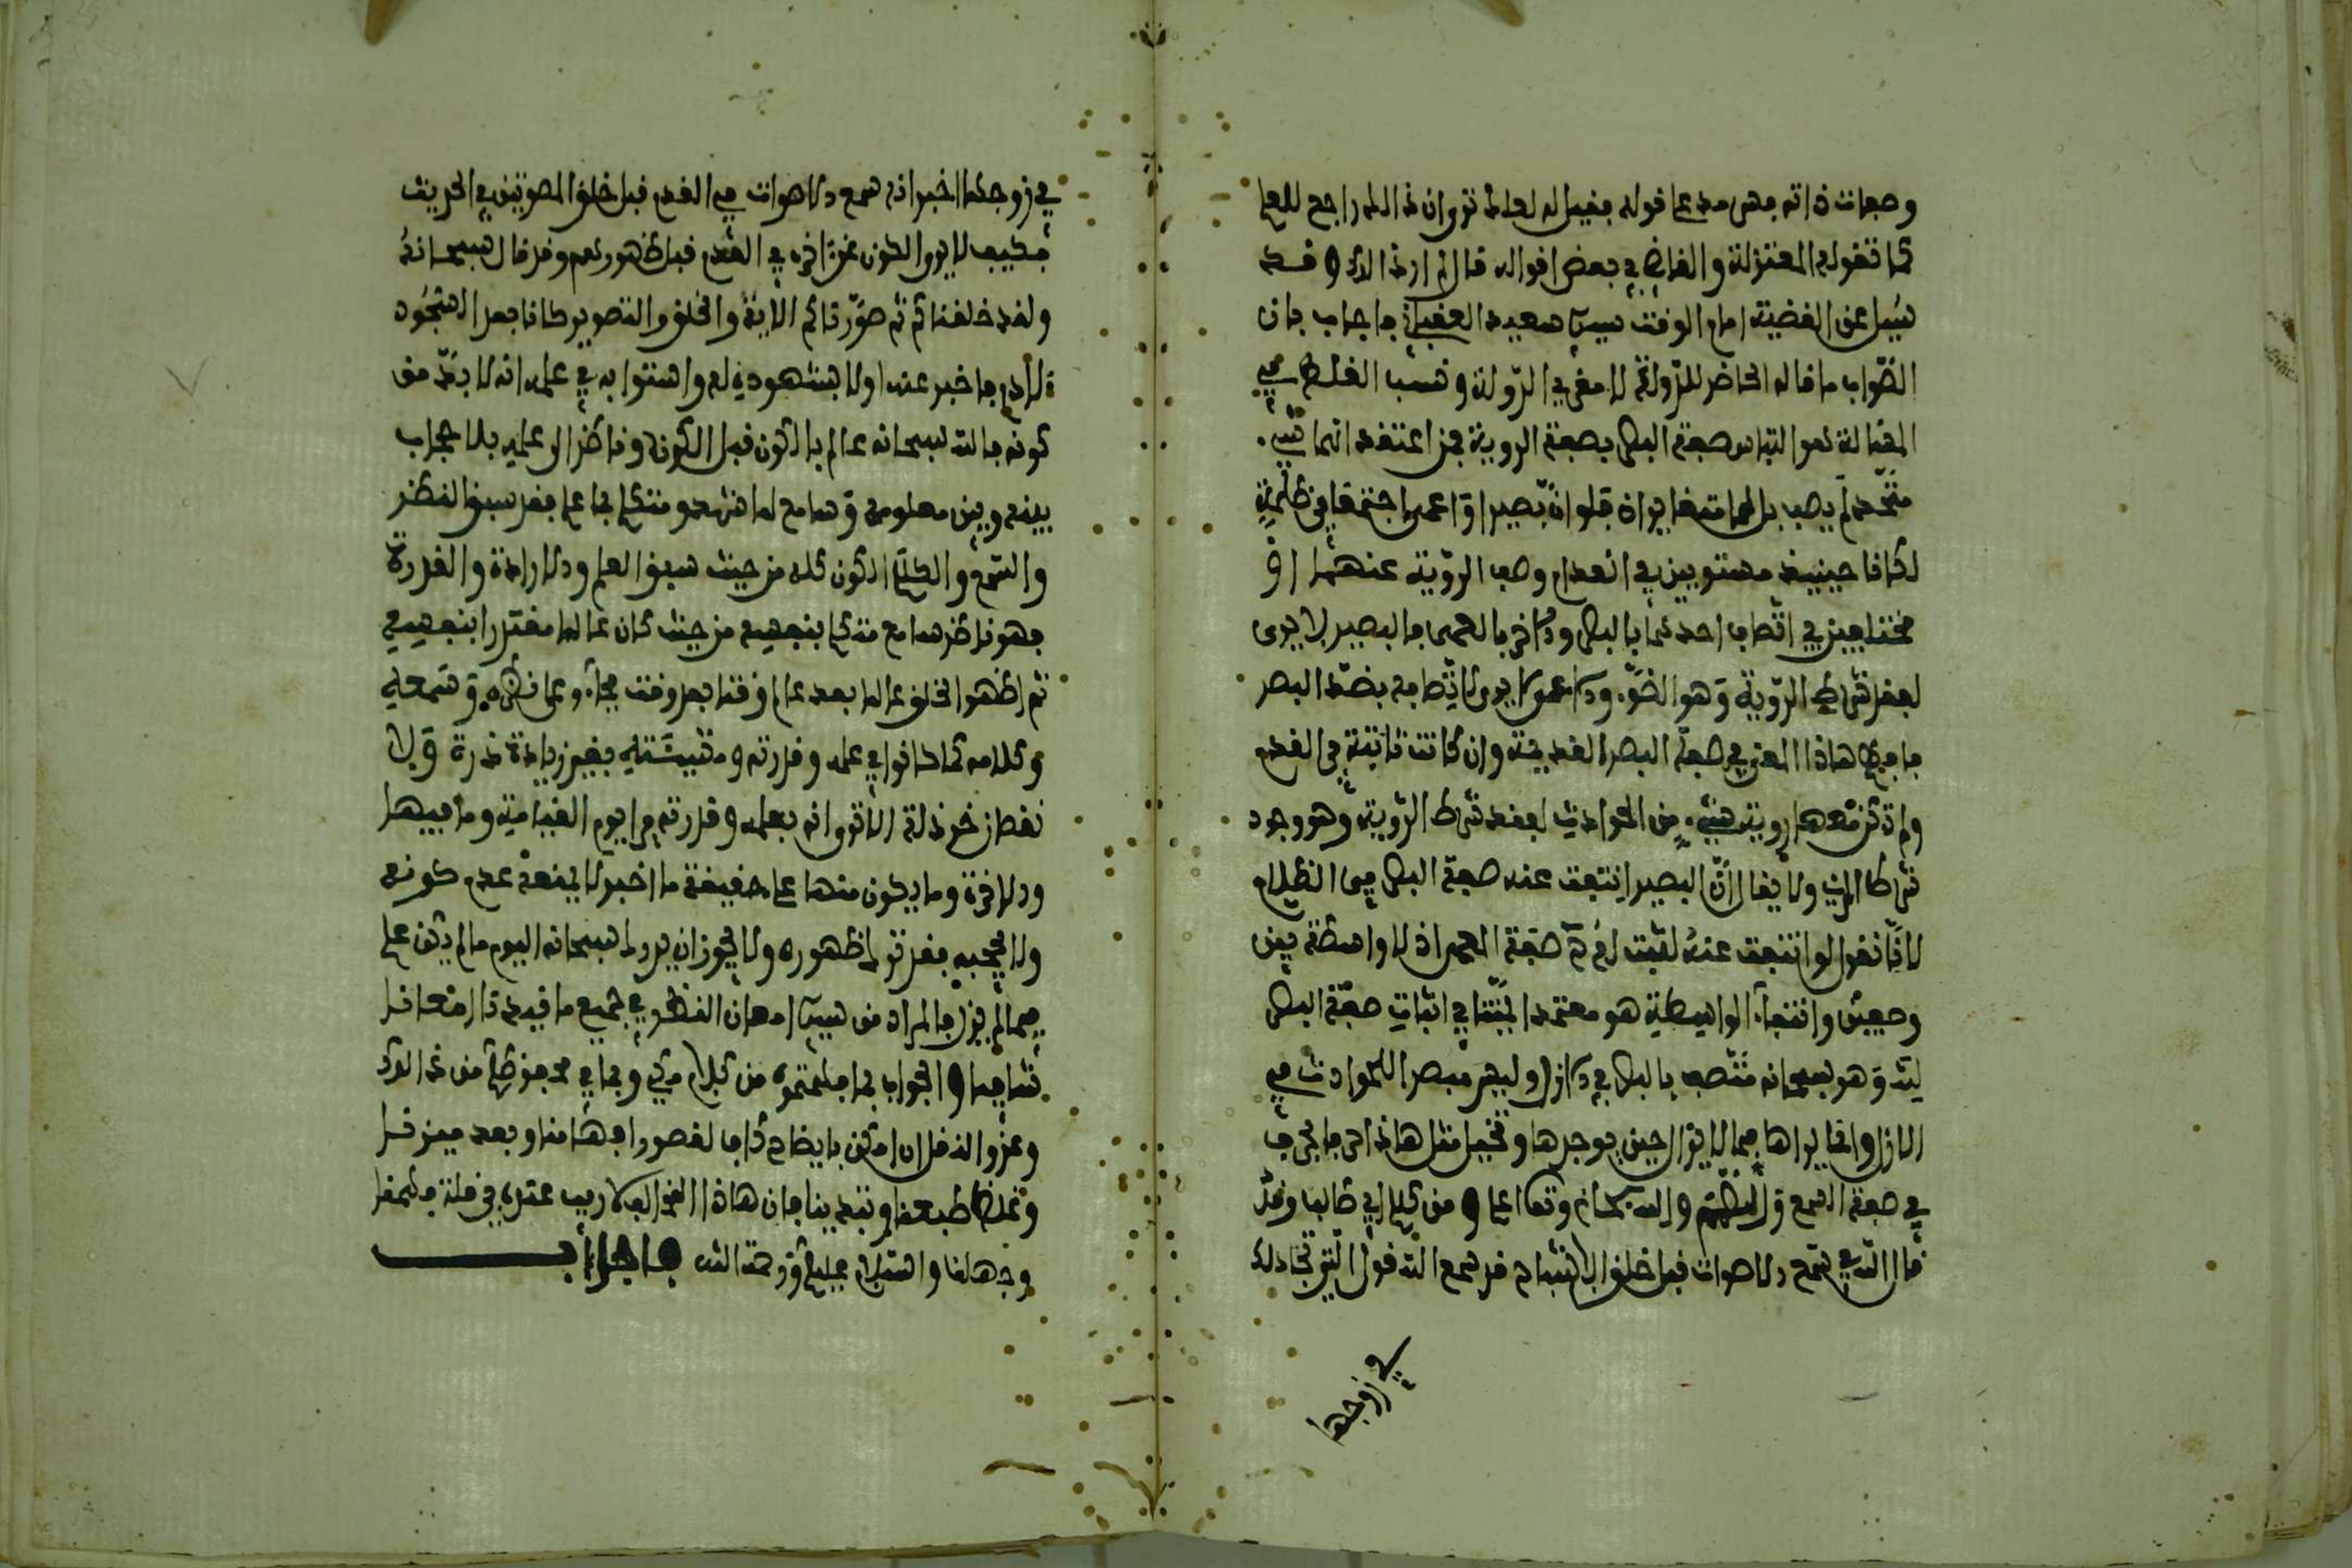 وصفات ذاته فهي على قوله فقيل له لعله يرى ان ذالك راجح للعلم
كما تقوله المعتزلة والقاضي في بعض اقواله قال لم ارد ذالك وقد
سئل عن القضية امام الوقت سيدي سعيد العقباني فاجاب بان
الصواب ما قاله الحاضر للدولة لا مغربي الدولة ونسب الغلط في
المقالة لهم التباس صفة البصر بصفة الروية فمن اعتقد انهما شيء
متحد لم يصب بل هما متغايران فلو ان بصيرا واعمى اجتمعا في ظلمة
لكانا حينيذ مستويين في انعدام وصف الروية عنهما او
مختلفين في اتصاف احدهما بالبصر والاخر بالعمى فالبصير لا يرى
لفقد شرط الروية وهو الضوء والاعمى لا يرى لاتصافه بضد البصر
فافهم هاذا المعنى في صفة البصر القديمة وان كانت ثابتة في القدم
ولم تكن معها روية شيء من الحوادث لفقد شرط الروية وهو وجود
شرط المرئي ولا يقال ان البصير انتفت عنه صفة البصر في الظلام
لانا نقول لو انتفت عنه لثبت له صفة العمى اذ لا واسطة بين
وصفين وانتفاء الواسطة هو معتمد ايمتنا في اثبات صفة البصر
لله وهو سبحانه متصف بالبصر في الازل وليس مبصرا للحوادث في
الازل وانما يراها فيما لا يزال حين يوجدها وتخيل مثل هاذا في ما يعرف
في صفة السمع والتكلم والله سبحانه وتعالى اعلم ومن كلام ابي طالب وقد
قال الله سمع الاصوات قبل خلق الاشباح قد سمع الله قول التي تجادلك
في زوجها
في زوجها اخبر انه سمع الاصوات في القدم قبل خلق المصوتين في الحديث
فكيف لا يرى الكون عن اخره في القدم قبل ظهوره نعم وقد قال سبحانه
ولقد خلقناكم ثم صورناكم الاية والخلق والتصوير كانا بعد السجود
لادم فاخبر عنه اولا بشهوده له واستوايه في علمه انه لا بد من
كونه فالله سبحانه عالم بالكون قبل الكون وناظر الى علمه بلا حجاب
بينه وبين معلومه وسامع لما شهد ومتكلم بما علم فقد سبق النظر
والسمع والكلام الكون كله من حيث سبق العلم والارادة والقدرة
فهو ناظر سامع متكلم بنفسه من حيث كان عالما مقتدرا بنفسه
ثم اظهر الخلق عالما بعد عالم وقتا بعد وقت فجاء وعلى نظره وسمعه
وكلامه كما كانوا في علمه وقدرته ومشيئته بغير زيادة ذرة ولا
نقصان خردلة الا ترى انه بعلمه وقدرته يرى يوم القيامة وما فيها
والاخرة وما يكون منها على حقيقة ما اخبر لا يمنعه عدم كونه
ولا يحجبه بعد تراخ ظهوره ولا يجوز ان يرد له سبحانه اليوم ما لم يكن علم
فيما لم يزل فالمراد من سيدي امعان النظر في جميع ما قيدناه امتعنا
شافيا والجواب بما فهمتموه من كلام مكي وبما في محفوظكم من غير ذالك
وعزو النقل ان امكن بايضاح كاف لقصور افهامنا وبعد ميزنا
وغلظ طبعنا وتبلدنا فان هاذا الغرالي بلا ريب عندي في قلة فهمنا
وجهلنا والسلام عليكم ورحمة الله فاجاب